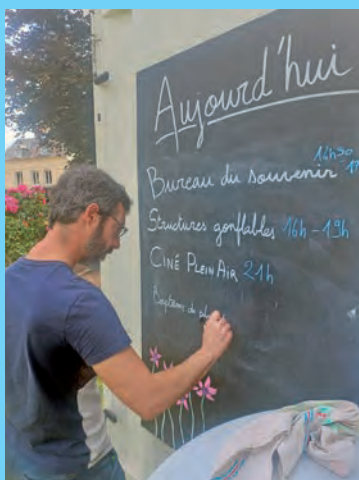 Aujourd'hui
Bureau du souvenir 14h30
Structures gonflables 16h - 19h
CINÉ PLEIN AIR 21h
Baptême de